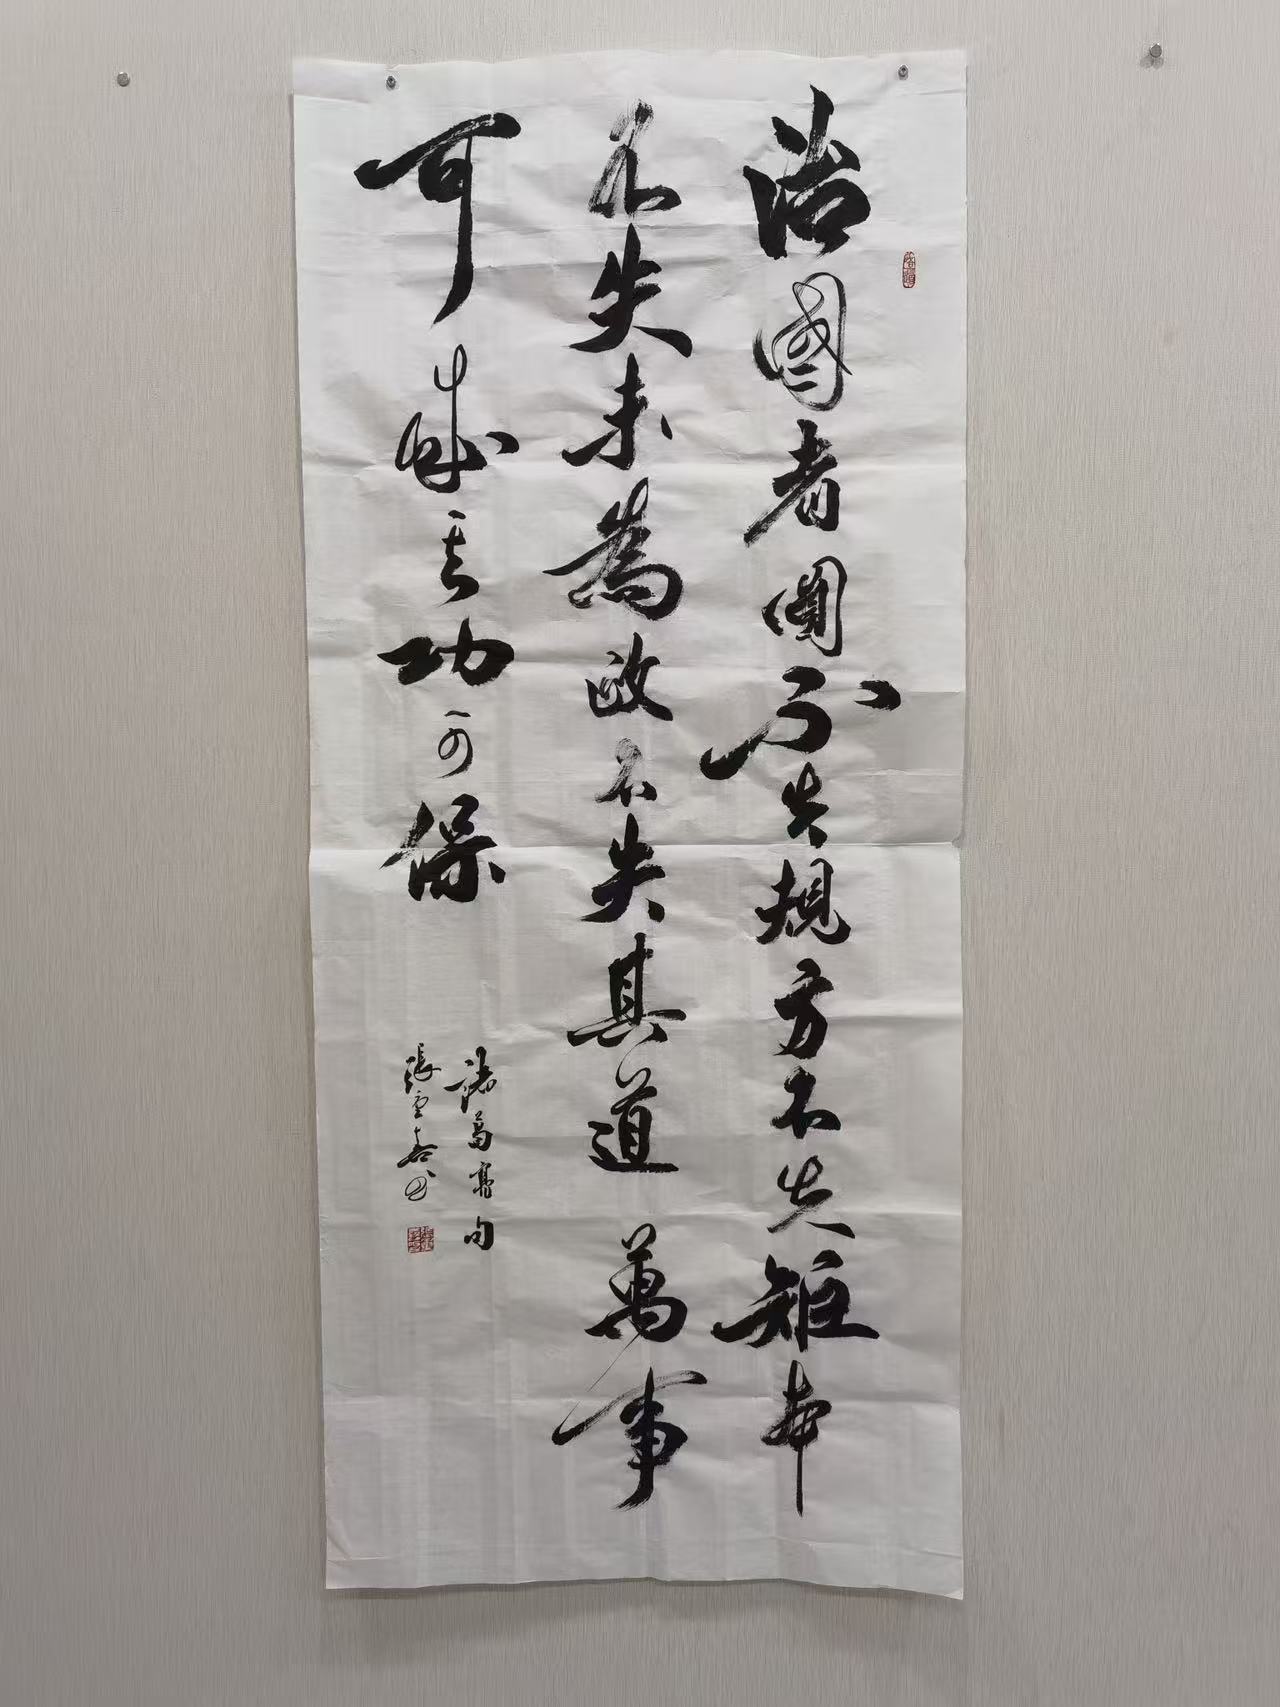 治國者圓不失規方不失矩本
不失末為政不失其道萬事
可成其功可保
諸葛亮句